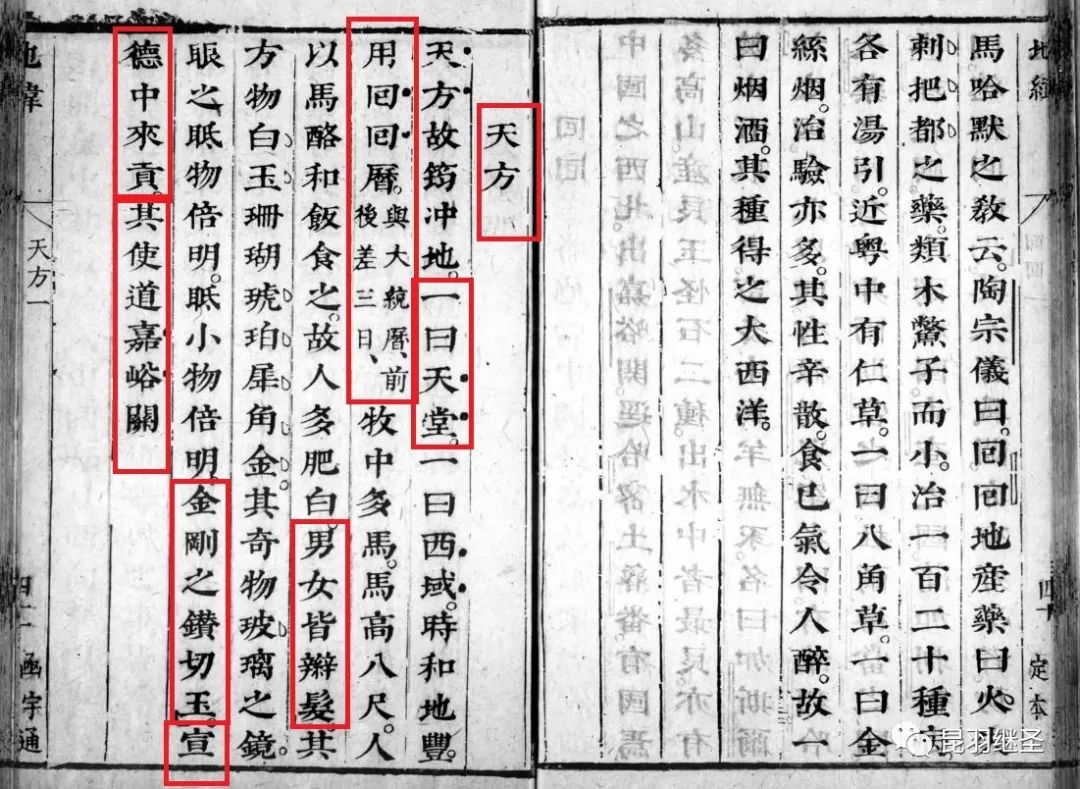 地緯
四十
定本
馬哈默之敎云。陶宗儀曰。囘囘地産藥曰火失
剌把都之藥。類木虌子而小。治一百二十種
各有湯引。近粤中有仁草。一曰八角草。一曰金
絲烟。治驗亦多。其性辛散。食已氣令人醉。故一
曰烟酒。其種得之大西洋。
天方
天方故筠冲地。一曰天堂。一曰西域。時和地豐。
用囘囘曆。與大統曆、前後差三日、牧中多馬。馬高八尺。人
以馬酪和飯食之。故人多肥白。男女皆辮髮其
方物白玉珊瑚琥珀犀角金。其奇物玻璃之鏡。
眡之眡物倍明。眡小物倍明。金剛之鑚切玉。宣
德中來貢。其使道嘉峪關
地緯
天方一
四十一
函宇通
昆羽继圣